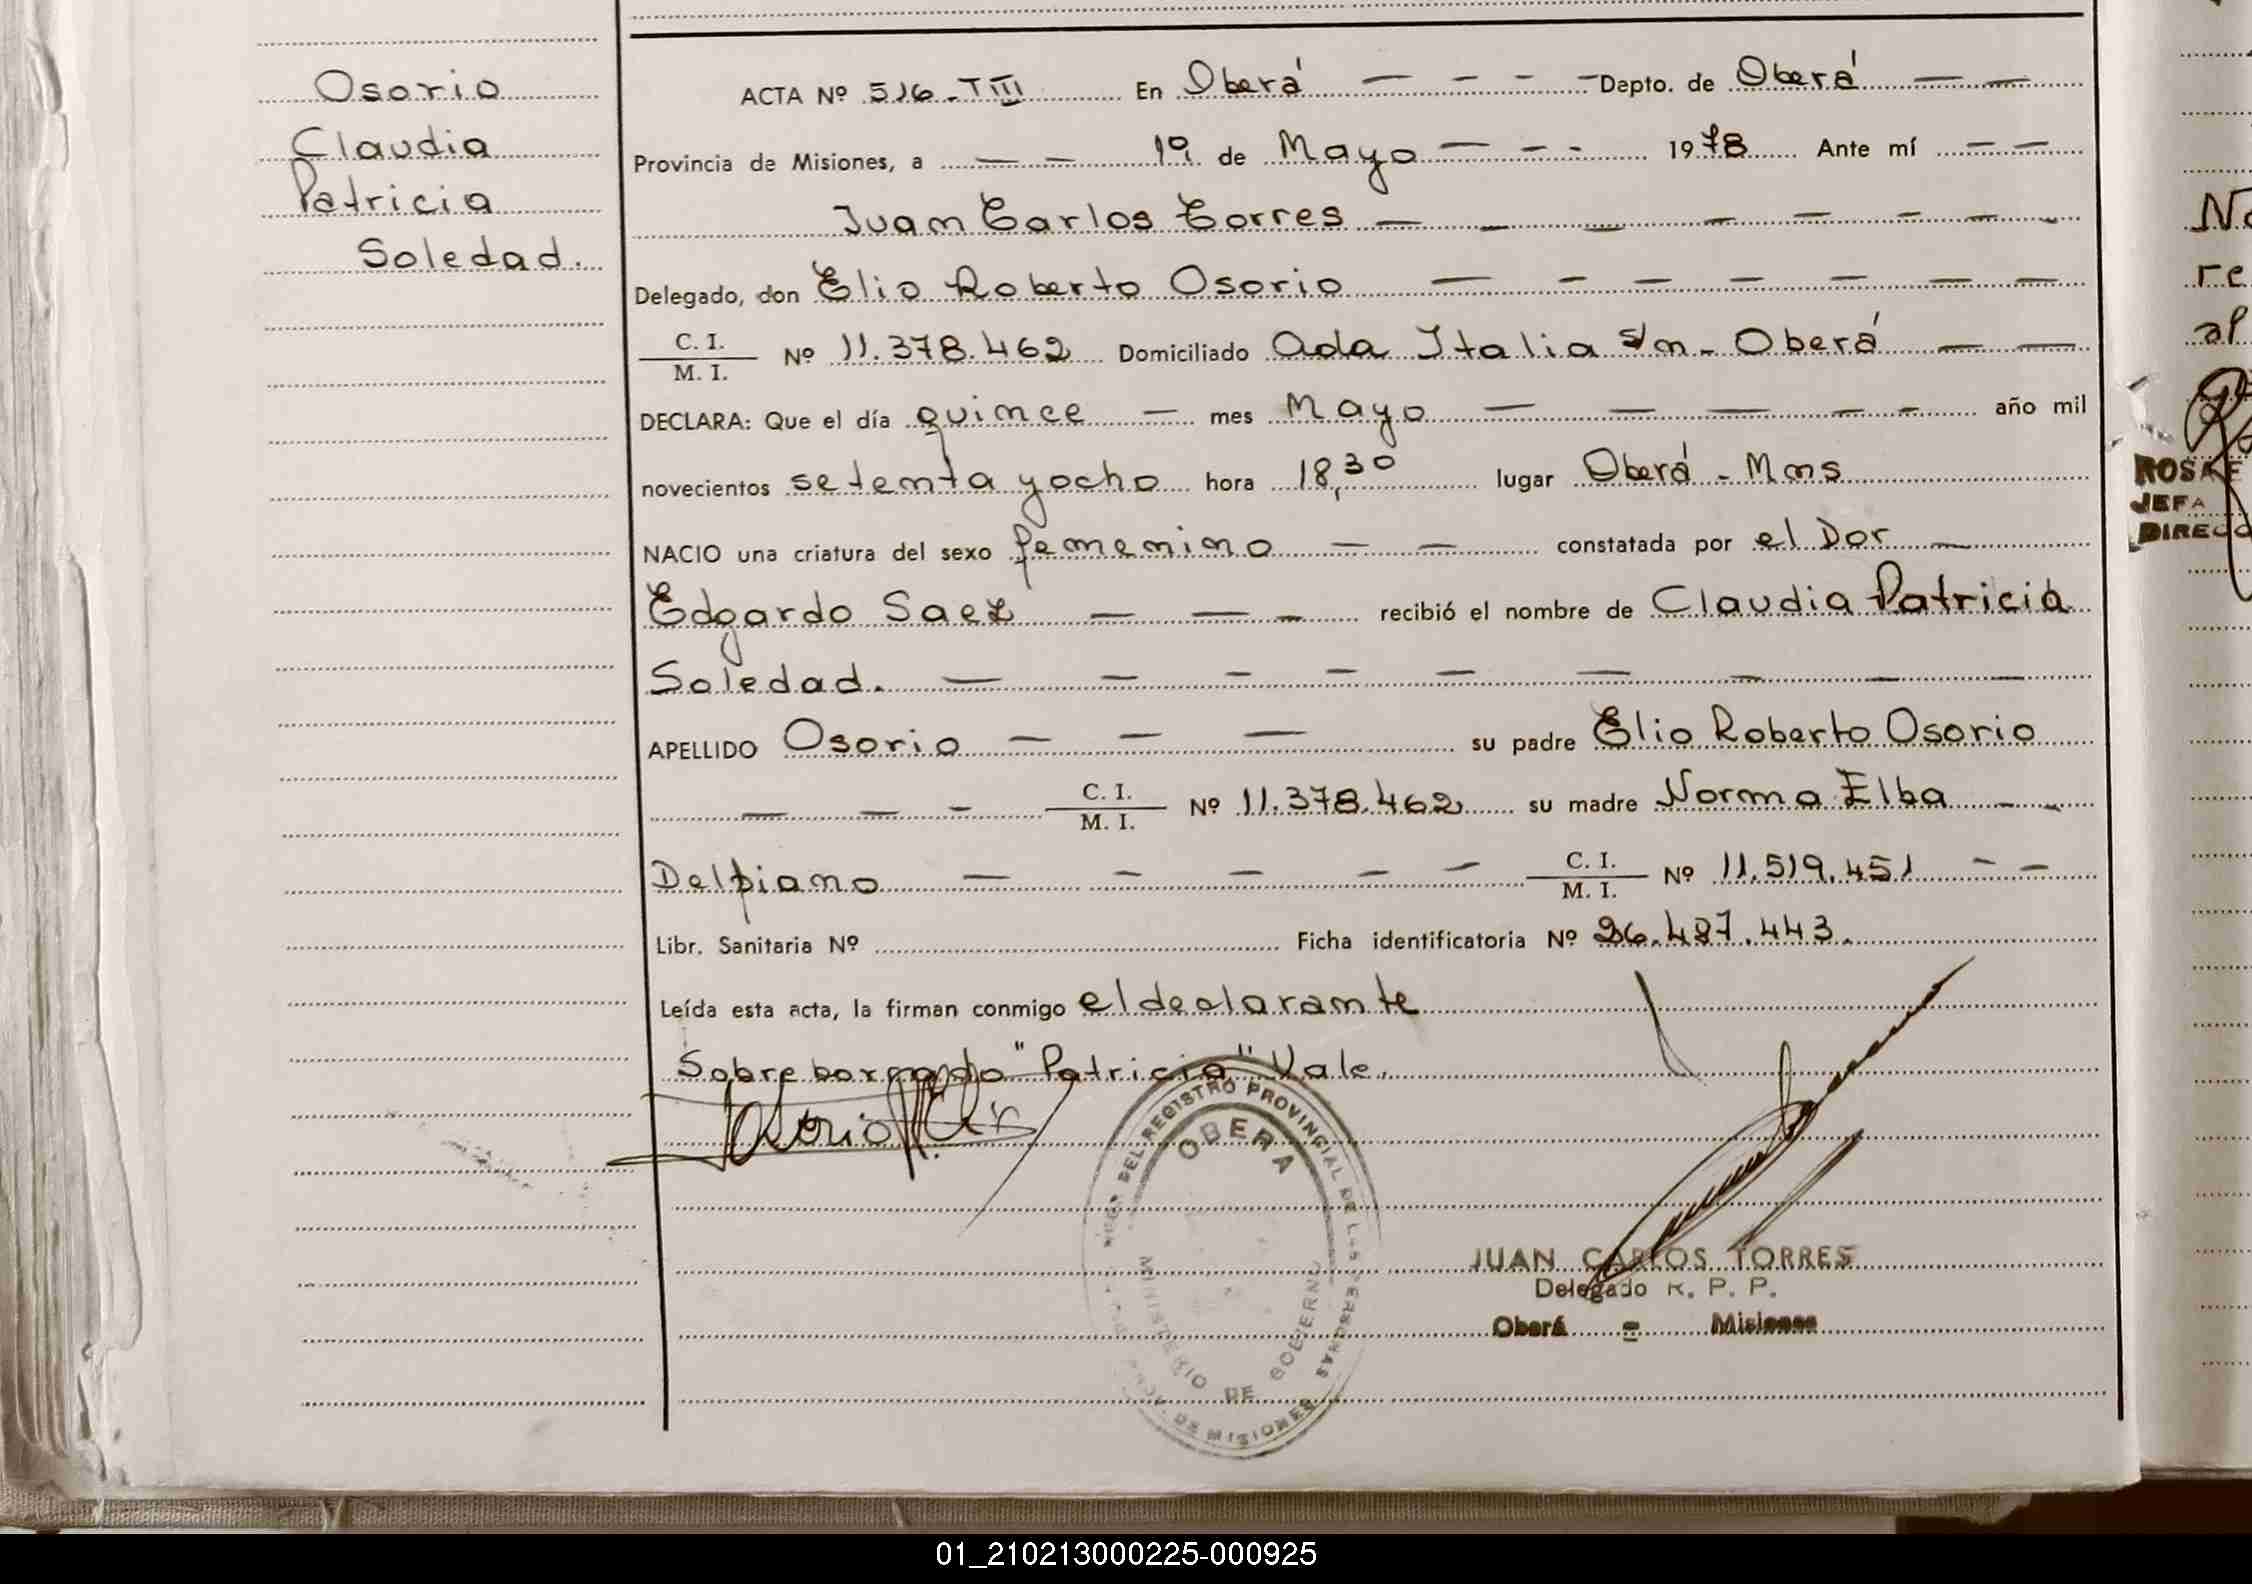 Osorio
Claudia
Patricia
Soledad.
ACTA Nº 516-TIII En Oberá — - - - Depto. de Oberá — —
Provincia de Misiones, a — — 19 de Mayo — - - 1978 Ante mí — —
Juan Carlos Torres — — — — — — — -
Delegado, don Elio Roberto Osorio — — — — — — —
C. I.
M. I. Nº 11.378.462 Domiciliado Ada Italia s/n - Oberá — —
DECLARA: Que el día quince — mes Mayo — — — — — año mil
novecientos setenta y ocho hora 18,30 lugar Oberá - Mns
NACIO una criatura del sexo femenino — — constatada por el Dor —
Edgardo Saez — — — recibió el nombre de Claudia Patricia
Soledad. — — — — — — — — —
APELLIDO Osorio — — — su padre Elio Roberto Osorio
— — — C. I.
M. I. Nº 11.378.462 su madre Norma Elba — -
Delpiano — — — — — C. I.
M. I. Nº 11.519.451 — —
Libr. Sanitaria Nº Ficha identificatoria Nº 26.487.443.
Leída esta acta, la firman conmigo el declarante
Sobre borrado "Patricia" Vale.
REGISTRO PROVINCIAL DE LAS PERSONAS
OBERA
MINISTERIO DE GOBIERNO
DE MISIONES
JUAN CARLOS TORRES
Delegado R. P. P.
Oberá - Misiones
No
re
al
ROSA E
JEFA
DIREC
01_210213000225-000925